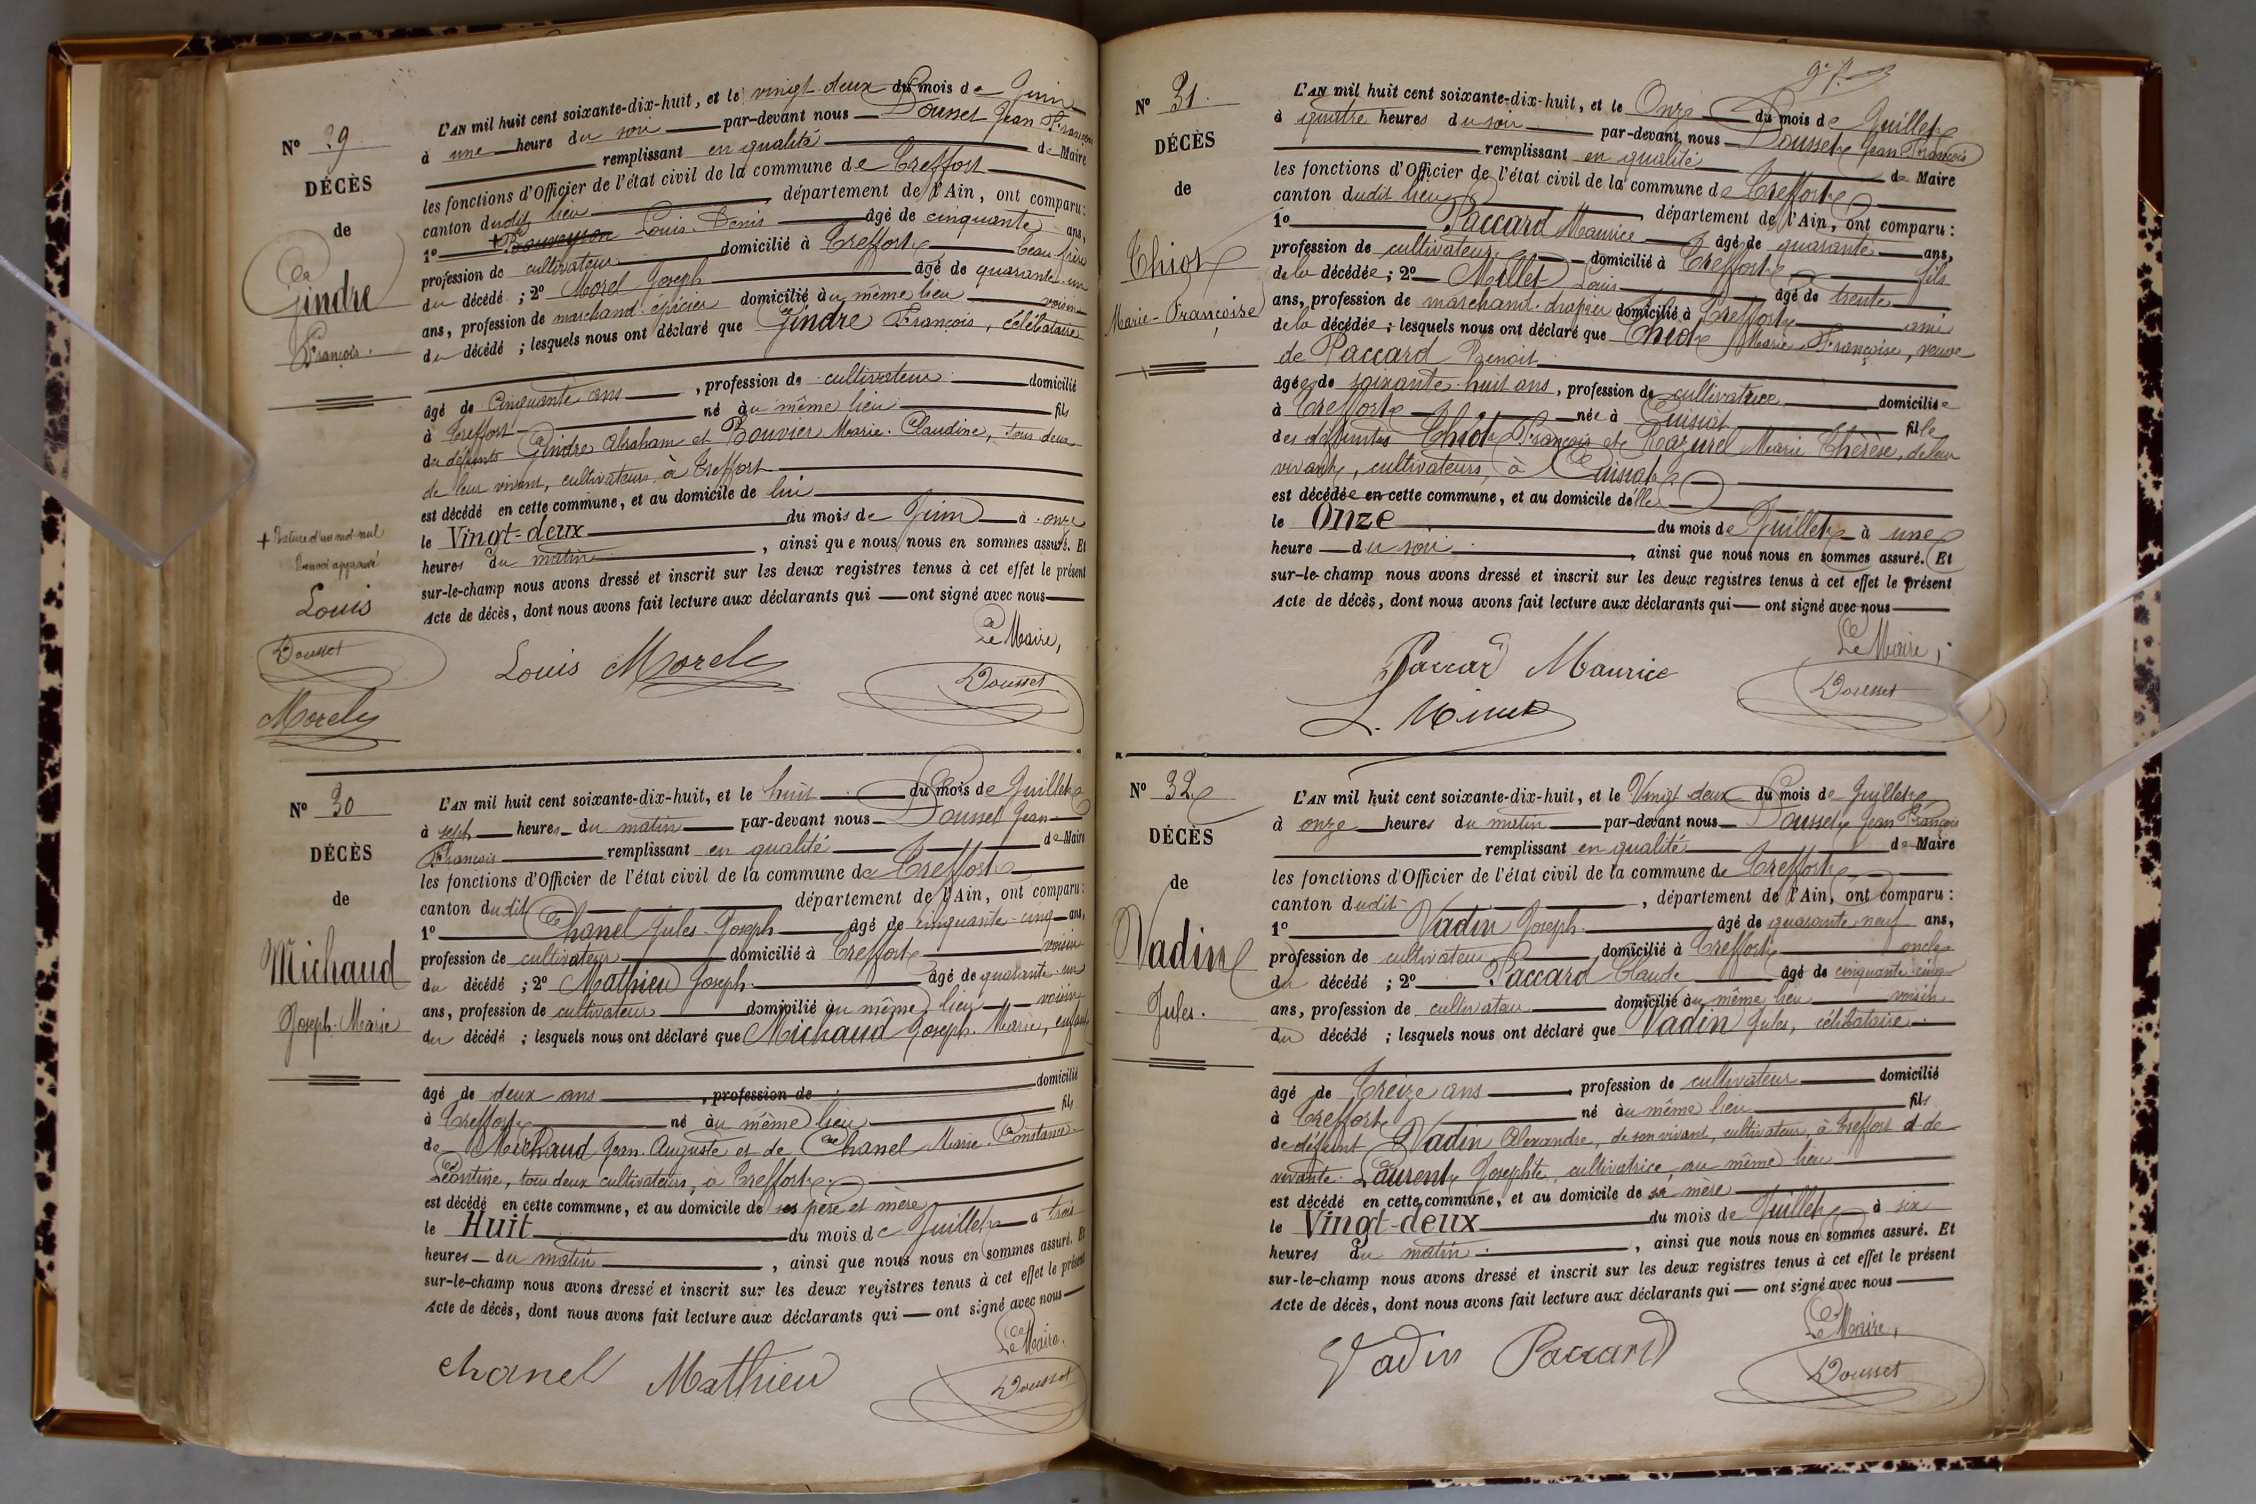 N° 29
DÉCÈS
de
Gindre
François.
+ Rature d'un mot nul
Renvoi approuvé
Louis
Dousset
Morel
L'AN mil huit cent soixante-dix-huit, et le vingt-deux du mois de Juin
à une heure du soir par-devant nous Dousset Jean François
remplissant en qualité de Maire
les fonctions d'Officier de l'état civil de la commune de Treffort
canton dudit lieu, département de l'Ain, ont comparu:
1° + Louis Denis âgé de cinquante ans,
profession de cultivateur domicilié à Treffort beau-frère
du décédé ; 2° Morel Joseph âgé de quarante-un
ans, profession de marchand-épicier domicilié au même lieu voisin
du décédé ; lesquels nous ont déclaré que Gindre François, célibataire
âgé de Cinquante ans, profession de cultivateur domicilié
à Treffort né au même lieu fils
du défunts Gindre Abraham et Bouvier Marie-Claudine, tous deux
de leur vivant, cultivateurs, à Treffort
est décédé en cette commune, et au domicile de lui
le Vingt-deux du mois de Juin à onze
heures du matin, ainsi que nous nous en sommes assuré. Et
sur-le-champ nous avons dressé et inscrit sur les deux registres tenus à cet effet le présent
Acte de décès, dont nous avons fait lecture aux déclarants qui — ont signé avec nous
Le Maire,
Louis Morel Dousset
N° 30
DÉCÈS
de
Michaud
Joseph-Marie
L'AN mil huit cent soixante-dix-huit, et le huit du mois de Juillet
à sept heures du matin par-devant nous Dousset Jean
François remplissant en qualité de Maire
les fonctions d'Officier de l'état civil de la commune de Treffort
canton dudit, département de l'Ain, ont comparu:
1° Chanel Jules-Joseph âgé de cinquante-cinq ans,
profession de cultivateur domicilié à Treffort voisin
du décédé ; 2° Mathieu Joseph âgé de quarante-un
ans, profession de cultivateur domicilié au même lieu voisin
du décédé ; lesquels nous ont déclaré que Michaud Joseph-Marie, enfant
âgé de deux ans, profession de domicilié
à Treffort né au même lieu fils
de Michaud Jean-Auguste et de Chanel Marie-Constance-
Léontine, tous deux cultivateurs, à Treffort
est décédé en cette commune, et au domicile de ses père et mère
le Huit du mois de Juillet à trois
heures du matin, ainsi que nous nous en sommes assuré. Et
sur-le-champ nous avons dressé et inscrit sur les deux registres tenus à cet effet le présent
Acte de décès, dont nous avons fait lecture aux déclarants qui — ont signé avec nous
Le Maire,
chanel Mathieu Dousset
N° 31
DÉCÈS
de
Thiot
Marie-Françoise
L'AN mil huit cent soixante-dix-huit, et le Onze du mois de Juillet
à quatre heures du soir par-devant nous Dousset Jean François
remplissant en qualité de Maire
les fonctions d'Officier de l'état civil de la commune de Treffort
canton dudit lieu, département de l'Ain, ont comparu:
1° Paccard Maurice âgé de quarante ans,
profession de cultivateur domicilié à Treffort fils
de la décédée ; 2° Millet Louis âgé de trente
ans, profession de marchand-drapier domicilié à Treffort ami
de la décédée ; lesquels nous ont déclaré que Thiot Marie-Françoise, veuve
de Paccard Benoit
âgée de soixante-huit ans, profession de cultivatrice domiciliée
à Treffort née à Cuisiat fille
des défunts Thiot François et Marie Thérèse, de leur
vivant, cultivateurs, à Cuisiat
est décédée en cette commune, et au domicile d'elle
le Onze du mois de Juillet à une
heure du soir, ainsi que nous nous en sommes assuré. Et
sur-le-champ nous avons dressé et inscrit sur les deux registres tenus à cet effet le présent
Acte de décès, dont nous avons fait lecture aux déclarants qui — ont signé avec nous
Le Maire,
Paccard Maurice Dousset
N° 32
DÉCÈS
de
Vadin
Jules.
L'AN mil huit cent soixante-dix-huit, et le Vingt-deux du mois de Juillet
à onze heures du matin par-devant nous Dousset Jean François
remplissant en qualité de Maire
les fonctions d'Officier de l'état civil de la commune de Treffort
canton dudit, département de l'Ain, ont comparu:
1° Vadin Joseph âgé de quarante-neuf ans,
profession de cultivateur domicilié à Treffort oncle
du décédé ; 2° Paccard Claude âgé de cinquante-cinq
ans, profession de cultivateur domicilié au même lieu voisin
du décédé ; lesquels nous ont déclaré que Vadin Jules, célibataire
âgé de Treize ans, profession de cultivateur domicilié
à Treffort né au même lieu fils
de défunt Vadin Alexandre, de son vivant, cultivateur, à Treffort et de
vivante Laurent Josephte, cultivatrice au même lieu
est décédé en cette commune, et au domicile de sa mère
le Vingt-deux du mois de Juillet à six
heures du matin, ainsi que nous nous en sommes assuré. Et
sur-le-champ nous avons dressé et inscrit sur les deux registres tenus à cet effet le présent
Acte de décès, dont nous avons fait lecture aux déclarants qui — ont signé avec nous
Le Maire,
Vadin Paccard Dousset